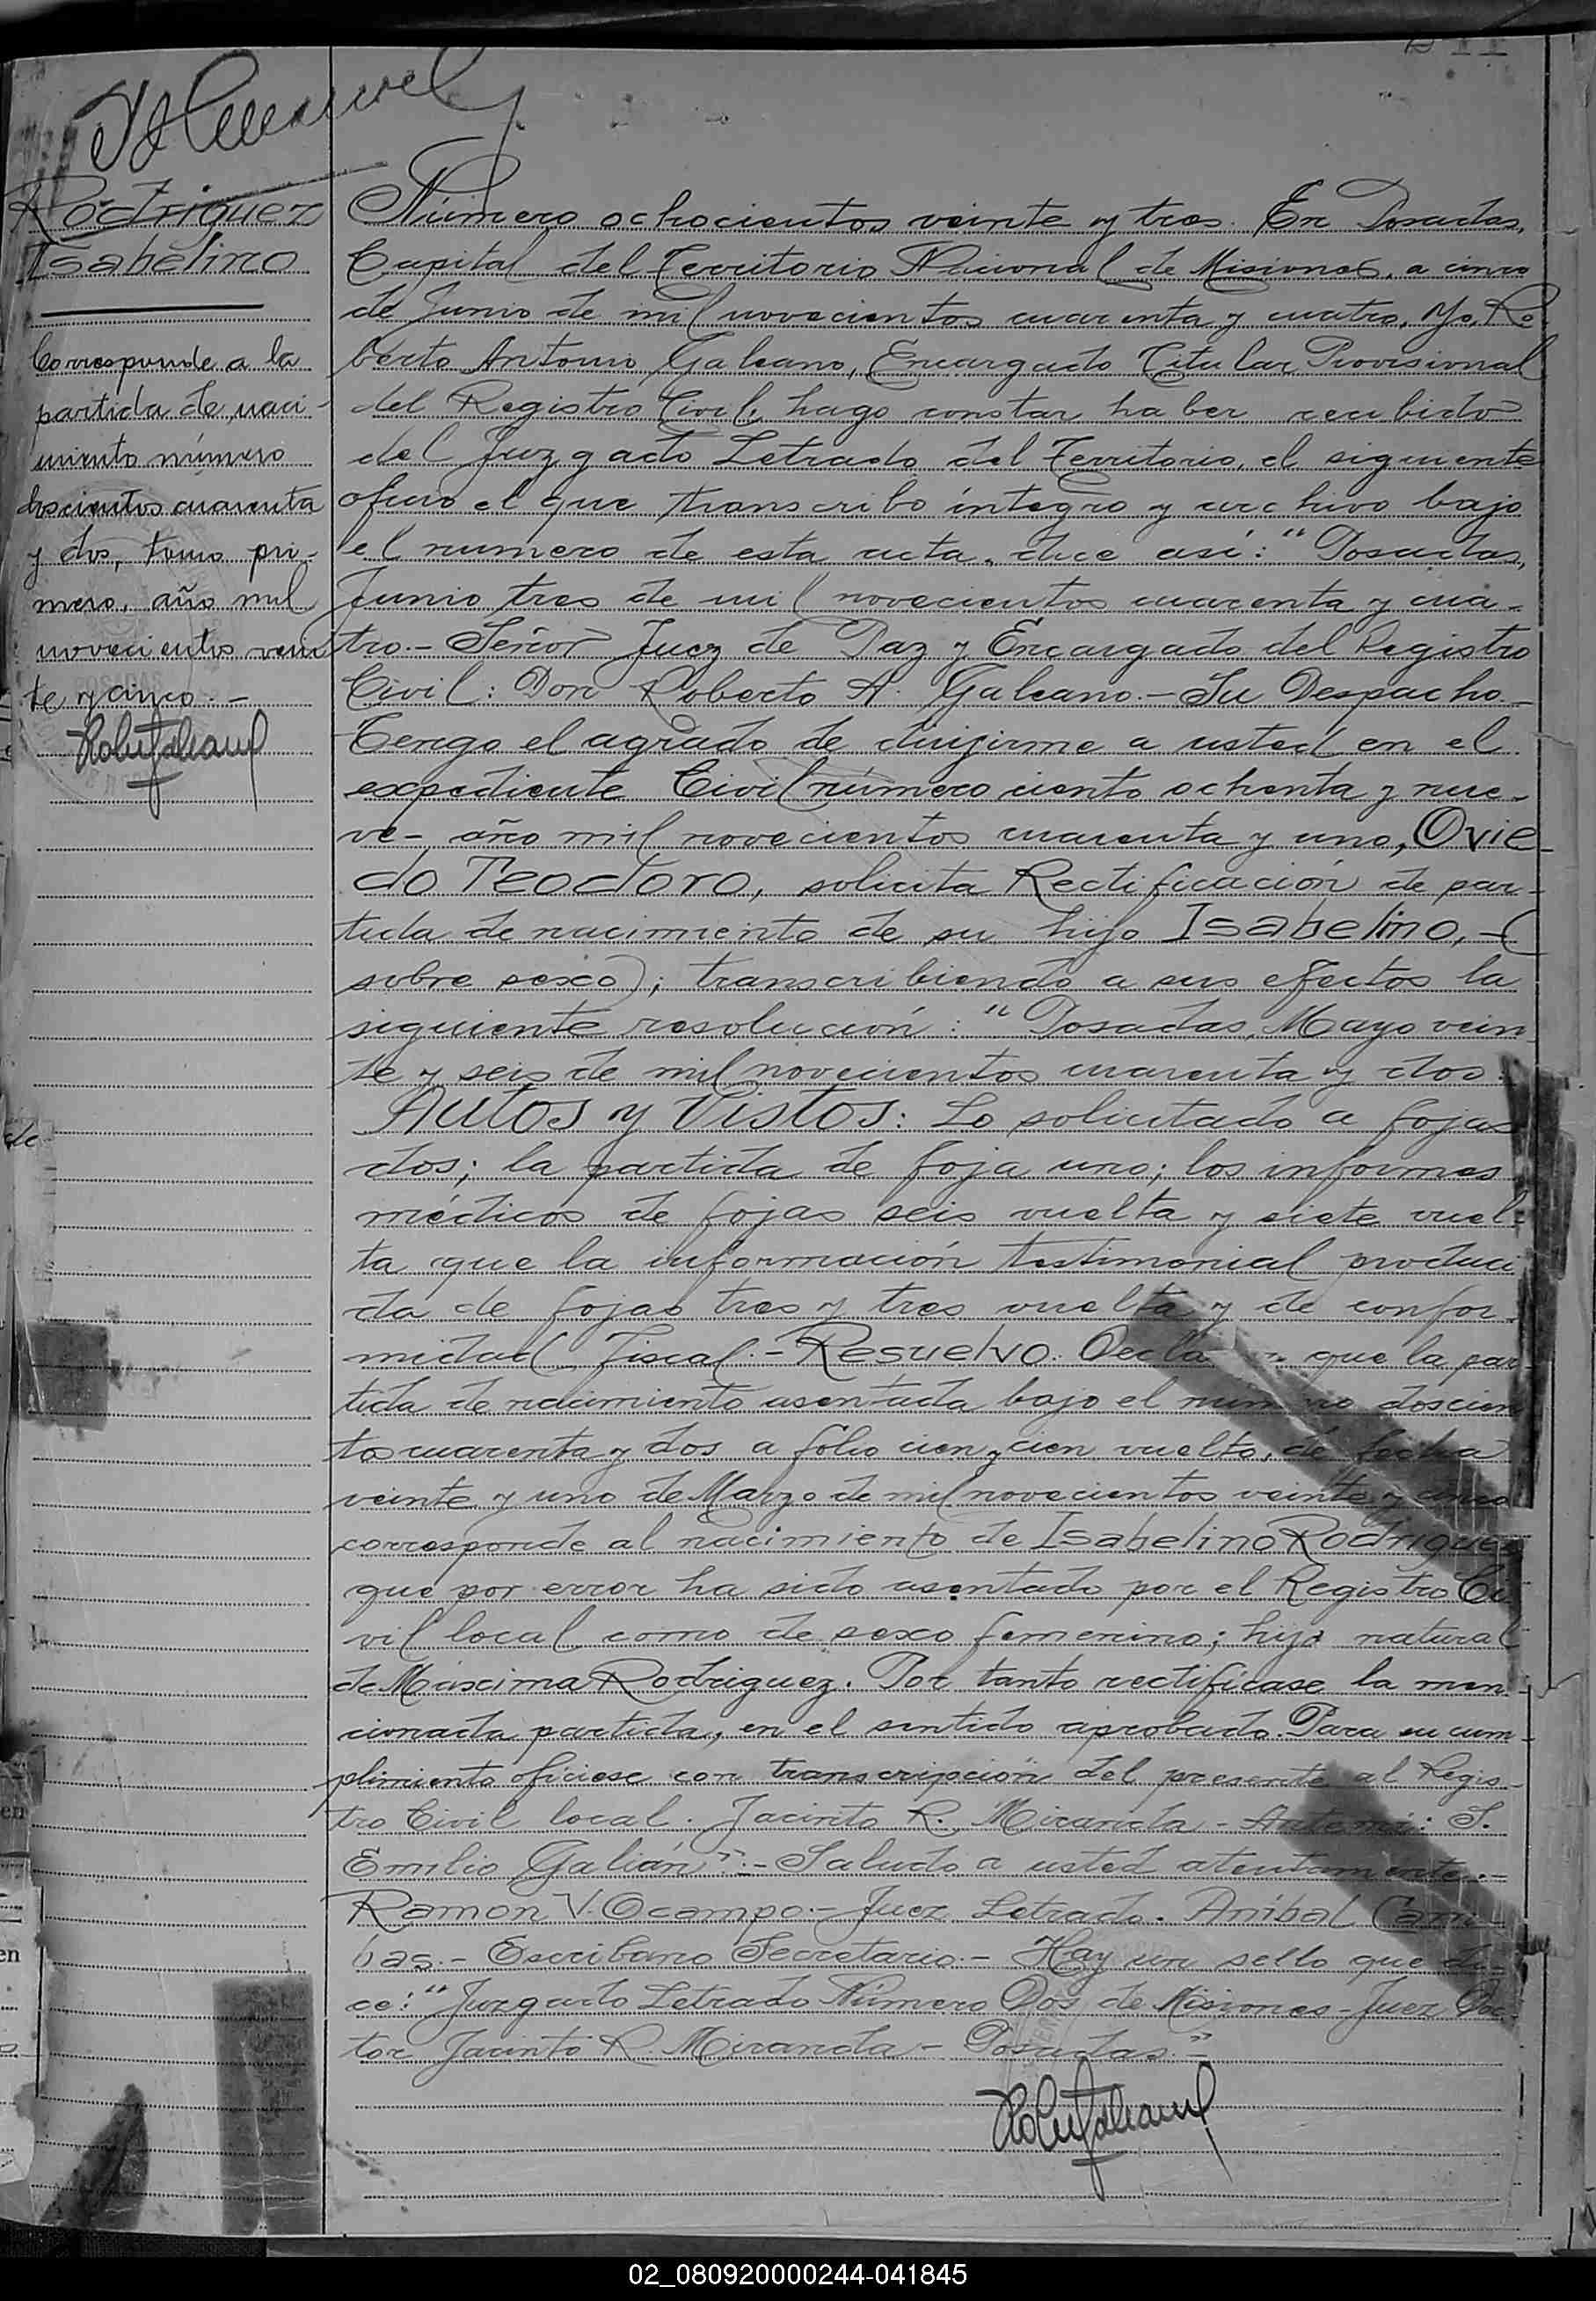 Rodriguez
Isabelino
Corresponde a la
partida de naci-
miento número
doscientos cuarenta
y dos, tomo pri-
mero, año mil
novecientos vein
te y cinco.-
Número ochocientos veinte y tres. En Posadas,
Capital del Territorio Nacional de Misiones, a cinco
de Junio de mil novecientos cuarenta y cuatro, Yo, Ro-
berto Antonio Galeano, Encargado Titular Provisional
del Registro Civil, hago constar haber recibido
del Juzgado Letrado del Territorio, el siguiente
oficio el que transcribo íntegro y archivo bajo
el numero de esta acta, dice así: "Posadas,
Junio tres de mil novecientos cuarenta y cua-
tro.- Señor Juez de Paz y Encargado del Registro
Civil: Don Roberto A. Galeano.- Su Despacho.-
Tengo el agrado de dirijirme a usted en el
expediente Civil número ciento ochenta y nue-
ve- año mil novecientos cuarenta y uno, Ovie-
do Teodoro, solicita Rectificación de par-
tida de nacimiento de su hijo Isabelino,-(
sobre sexo); transcribiendo a sus efectos la
siguiente resolución: "Posadas, Mayo vein
te y seis de mil novecientos cuarenta y dos.
Autos y Vistos: Lo solicitado a fojas
dos; la partida de foja uno; los informes
médicos de fojas seis vuelta y siete vuel-
ta que la información testimonial produci
da de fojas tres y tres vuelta y de confor-
midad Fiscal.- Resuelvo: que la par-
tida de nacimiento asentada bajo el número doscien
tos cuarenta y dos a folio cien y cien vuelto, de fecha
veinte y uno de Marzo de mil novecientos veinte y cinco
corresponde al nacimiento de Isabelino Rodriguez
que por error ha sido asentado por el Registro Ci
vil local como de sexo femenino; hijo natural
de Máxima Rodriguez. Por tanto rectifícase la men-
cionada partida, en el sentido aprobado. Para su cum-
plimiento ofíciese con transcripción del presente al Regis-
tro Civil local. Jacinto R. Miranda - Antemí: S.
Emilio Galián".- Saludo a usted atentamente.-
Ramon V. Ocampo.- Juez Letrado. Aníbal Cam
bas.- Escribano Secretario.- Hay un sello que di-
ce: "Juzgado Letrado Número Dos de Misiones - Juez Doc
tor Jacinto R. Miranda - Posadas."-
02_080920000244-041845